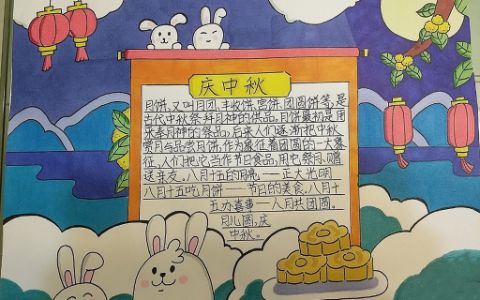 庆中秋
月饼,又叫月团、丰收饼、宫饼、团圆饼等,是
古代中秋祭拜月神的供品。月饼最初是用
来奉月神的祭品,后来人们逐渐把中秋
赏月与品尝月饼,作为象征着团圆的一大象
征,人们把它当作节日食品,用它祭月、赠
送亲友。八月十五的月亮——正大光明
八月十五吃月饼——节日的美食,八月十
五办喜事——人月共团圆。
月儿圆,庆
中秋。